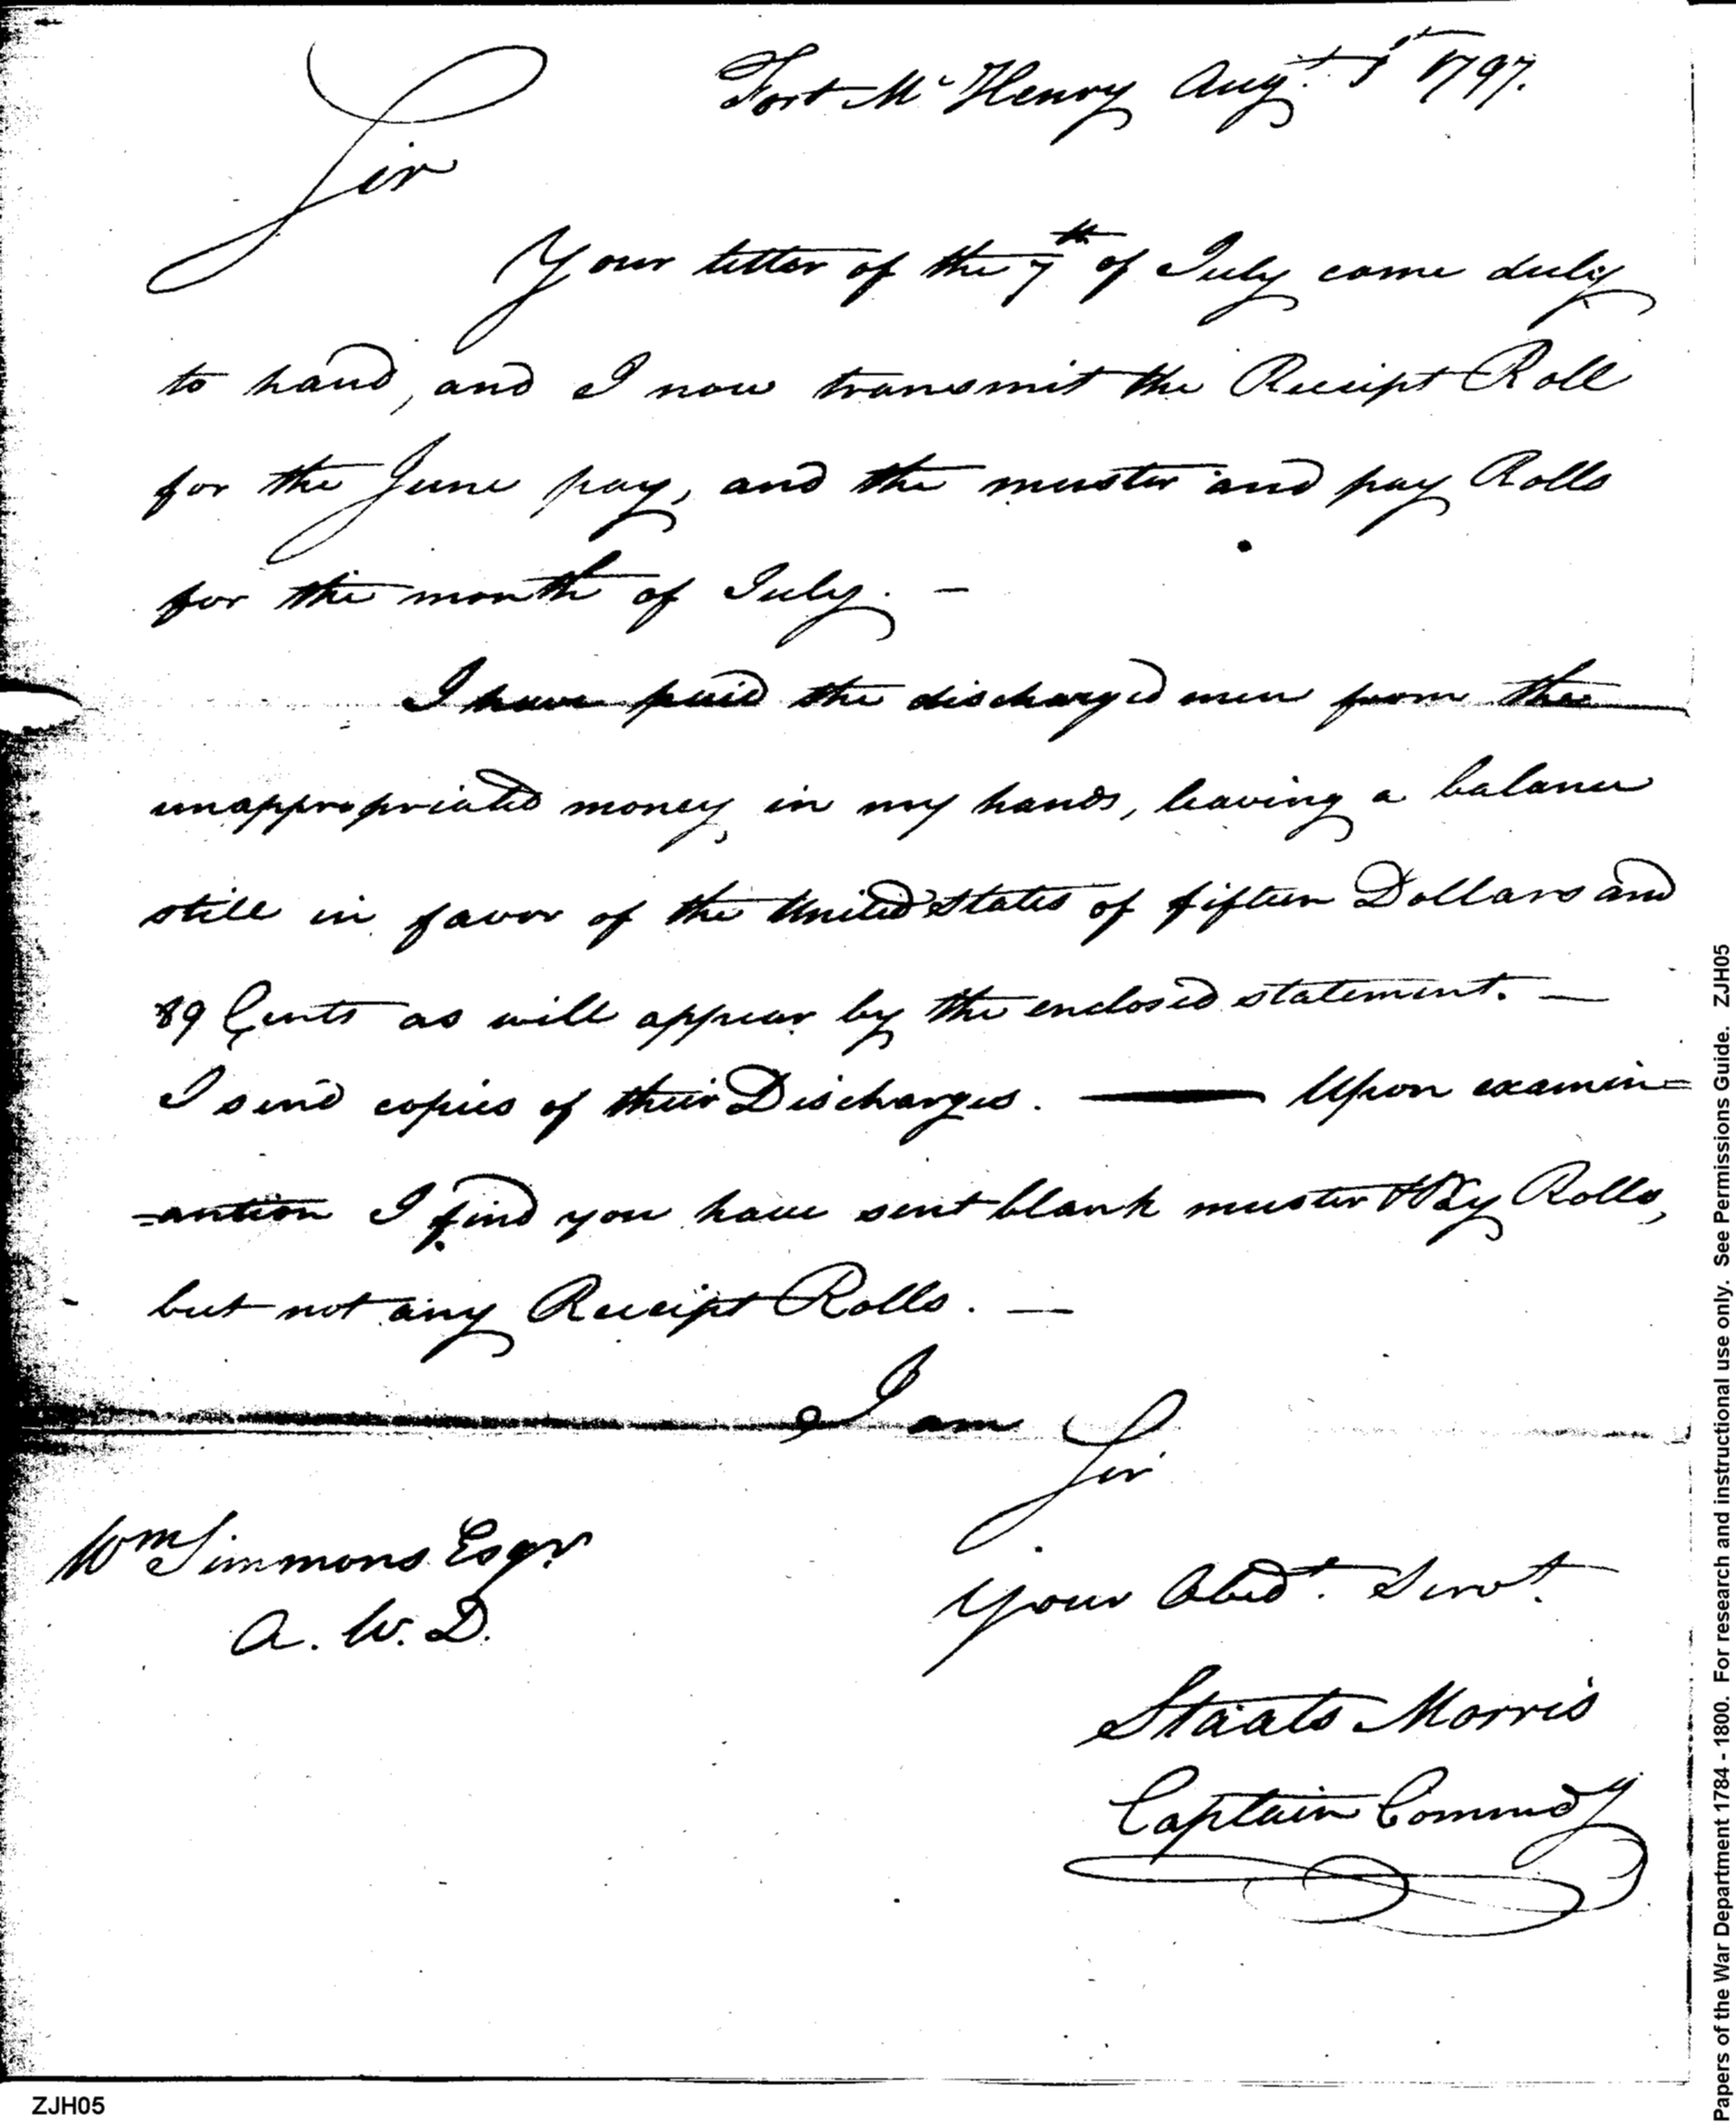 Fort McHenry Augt. 1st 1797.
Sir
Your letter of the 7th of July came duly
to hand, and I now transmit the Receipt Roll
for the June pay, and the muster and pay Rolls
for the month of July. —
I have paid the discharged men from the
unappropriated money in my hands, leaving a balance
still in favor of the United States of fifteen Dollars and
89 Cents as will appear by the enclosed statement. —
I send copies of their Discharges. — Upon examin=
=antion I find you have sent blank muster & Pay Rolls,
but not any Receipt Rolls. —
I am
Sir
your Obedt. Servt.
Staats Morris
Captain Commdg
Wm Simmons Esqr
A. W. D.
ZJH05
Papers of the War Department 1784 - 1800. For research and instructional use only. See Permissions Guide. ZJH05